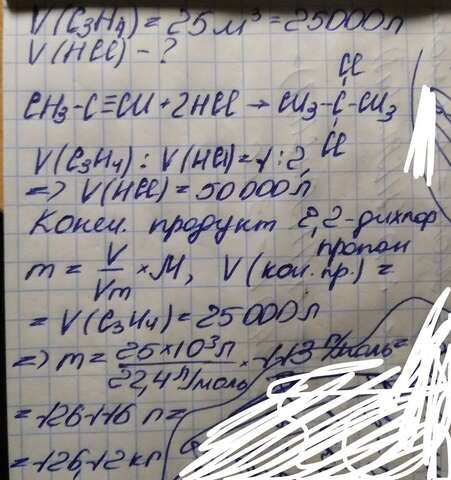 V(C₃H₄) = 25 м³ = 25000 л
V(HCl) - ?
Cl
CH₃-C≡CH + 2HCl → CH₃-C-CH₃
Cl
V(C₃H₄) : V(HCl) = 1 : 2,
=> V(HCl) = 50 000 л
Конеч. продукт 2,2-дихлор
пропан
m = V/Vm × M, V(кон. пр.) =
= V(C₃H₄) = 25000 л
=> m = 25×10³ л / 22,4 л/моль · 113 г/моль =
= 126116 г =
= 126,12 кг